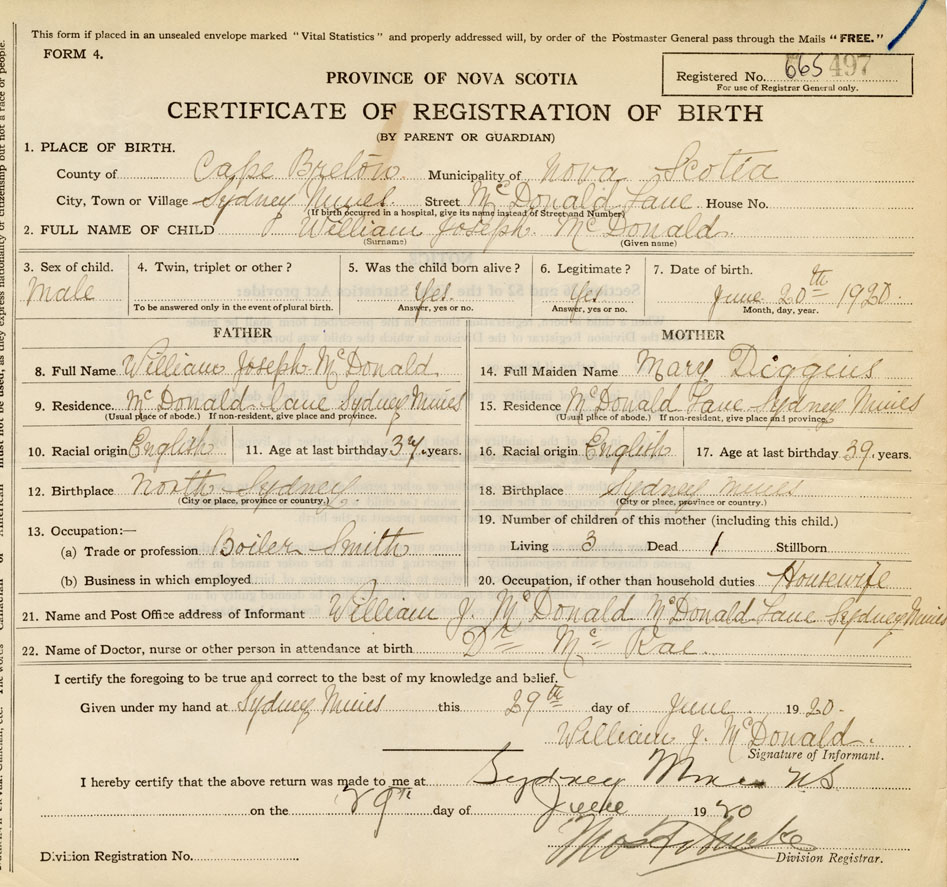 This form if placed in an unsealed envelope marked "Vital Statistics" and properly addressed will, by order of the Postmaster General pass through the Mails "FREE."
FORM 4.
Registered No. 665 497
For use of Registrar General only.
PROVINCE OF NOVA SCOTIA
CERTIFICATE OF REGISTRATION OF BIRTH
(BY PARENT OR GUARDIAN)
1. PLACE OF BIRTH.
County of Cape Breton Municipality of Nova Scotia
City, Town or Village Sydney Mines Street McDonald Lane House No.
(If birth occurred in a hospital, give its name instead of Street and Number)
2. FULL NAME OF CHILD William Joseph McDonald
(Surname) (Given name)
3. Sex of child. 4. Twin, triplet or other? 5. Was the child born alive? 6. Legitimate? 7. Date of birth.
Male Yes. Yes. June 20th 1920.
To be answered only in the event of plural birth. Answer, yes or no. Answer, yes or no. Month, day, year.
FATHER
8. Full Name William Joseph McDonald
9. Residence. McDonald Lane Sydney Mines
(Usual place of abode.) If non-resident, give place and province.
10. Racial origin English 11. Age at last birthday 37. years.
12. Birthplace North Sydney.
(City or place, province or country.)
13. Occupation:—
(a) Trade or profession Boiler Smith
(b) Business in which employed
MOTHER
14. Full Maiden Name Mary Diggins
15. Residence McDonald Lane Sydney Mines
(Usual place of abode.) If non-resident, give place and province
16. Racial origin English 17. Age at last birthday 39. years.
18. Birthplace Sydney Mines
(City or place, province or country.)
19. Number of children of this mother (including this child.)
Living 3 Dead 1 Stillborn
20. Occupation, if other than household duties Housewife
21. Name and Post Office address of Informant William J. McDonald McDonald Lane Sydney Mines
22. Name of Doctor, nurse or other person in attendance at birth Dr McRae.
I certify the foregoing to be true and correct to the best of my knowledge and belief.
Given under my hand at Sydney Mines this 29th day of June 1920.
William J. McDonald.
Signature of Informant.
I hereby certify that the above return was made to me at Sydney Mines NS
on the 29th day of June 1920
Division Registration No. Division Registrar.